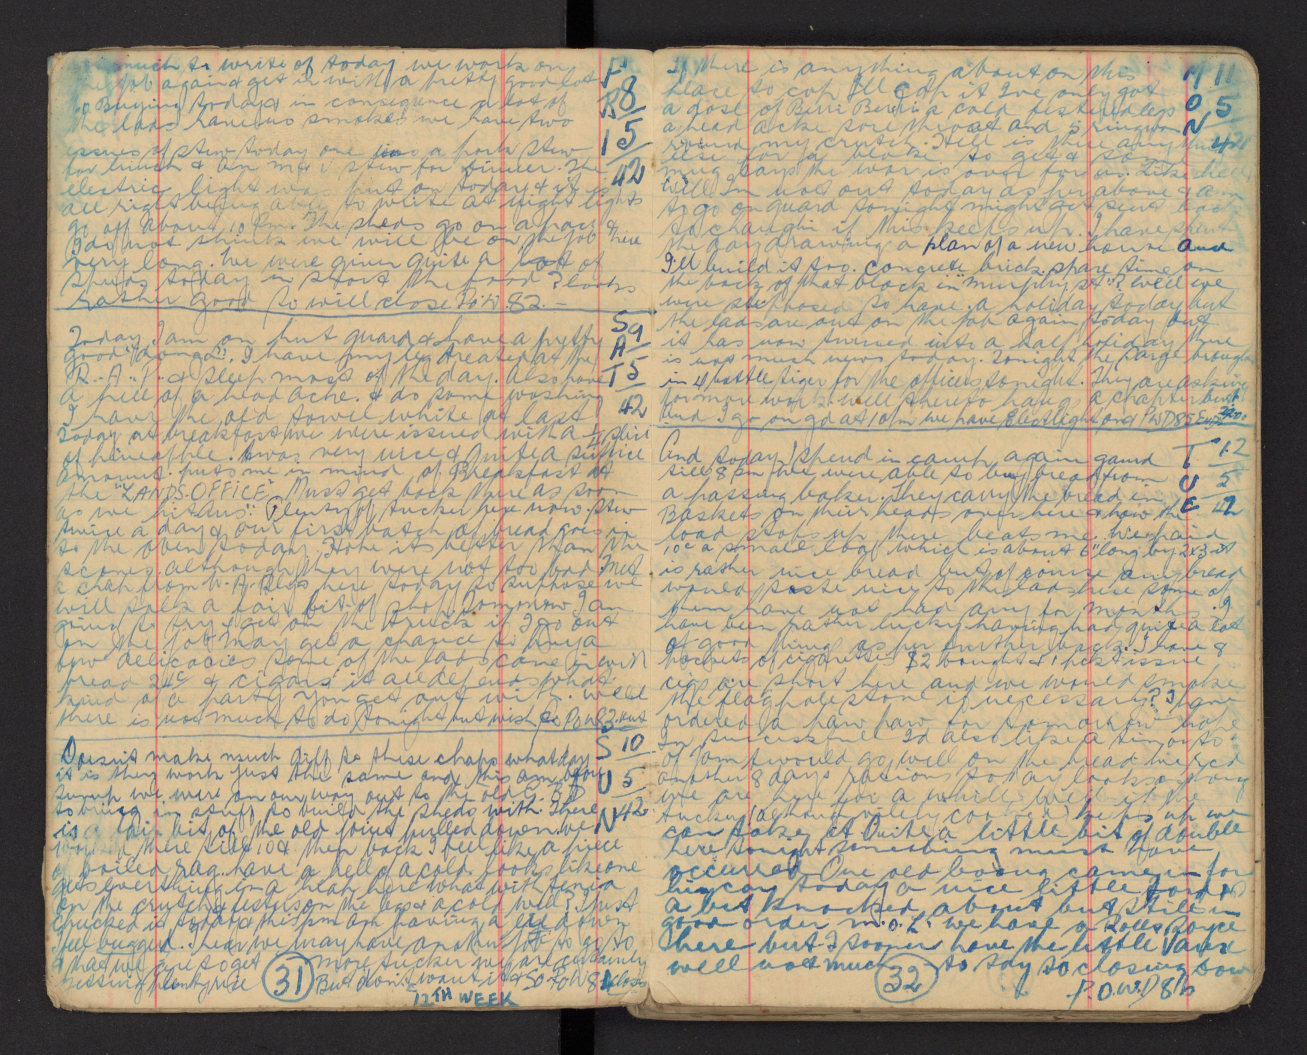 much to write of today we work on
the job again & get in with a pretty good lot
no Buying today & in consequence a lot of
the lads have no smokes we have two
issues of stew today one was a pork stew
for lunch & an m & v stew for dinner. The
electric light was put on today & it is
all right being able to write at night lights
go off about 10 Pm. The sheds go on apace &
I do not think we will be on the job here
very long. We were given quite a lot of
spuds today in short the food looks
rather good so will close POW 82 -
F
R
I
8
5
42
Today I am on hut guard & have a pretty
good "donga". I have my leg treated at the
R.A.P. & sleep most of the day. Also have
a hell of a head ache. & do some washing
I have the old towel white at last
Today at breakfast we were issued with a 1/2 slice
of pineapple. twas very nice & quite a suffice
amount. puts me in mind of Breakfast at
the "LANDS-OFFICE" Must get back there as soon
as we hit Aus. Plenty of tucker here now. Stew
twice a day & our first batch of bread goes in
to the oven today. Hope its better than the
scones although they were not too bad. Met
a chap from W.A. Plus here today so suppose we
will talk a fair bit of shop Tomorrow I am
going to try & get on the truck if I go out
on the job. May get a chance to Buy a
few delicacies some of the lads came in with
bread 24c & cigars it all depends what
kind of a party you get out with. Well
there is not much to do tonight but wish so POW 83 out
S
A
T
9
5
42
Doesn't make much diff to these chaps what day
it is they work just the same and this am before
sunup we were on our way out to the old
to bring in stuff to build the sheds with. There
is a fair bit of the old joint pulled down. we
worked there till 10 & then back I feel like a piece
of boiled rag have a hell of a cold. looks like one
gets everything in a heap here what with tinea
on the crutch & ulsers on the legs & a cold well I just
chucked it today & this pm am having a lay down
feel bugged. I hear we may have another job to go to
I had we are to get more tucker we are certainly
missing plenty rice But don't want it & so POW 84 closes
S
U
N
10
5
42
31
12TH WEEK
If there is anything about on this
place to cop Ill cop it I've only got
a dose of Berri Berri a cold blistered legs
a head ache sore throat and a ringworm
round my crutch. Hell is there anything
else for a bloke to get & some
mug says the war is over for us. Like hell
it is. Im not out today as per above & am
to go on guard tonight might get sent back
to changhi if this keeps up. I have spent
the day drawing a plan of a new house and
I'll build it too. concrete brick. spare time on
the back of that block in murphy st? Well we
were supposed to have a holiday today but
the lads are out on the job again today but
it has now turned into a half holiday there
is not much news today. Tonight the sarge brought
in 4 bottle tiger for the officers tonight. They are asking
for more work. well there to hand a chapter but
end I go on gd at 10 pm we have Electlight on & POW D 85 Ends
M
O
N
11
5
42
And today I spend in camp again gaurd
till 8 Am we were able to buy bread from
a passing baker. They carry the bread in
Baskets on their heads over here & how the
load stops up there beats me. We paid
10c a small loaf which is about 6" long by 2x3 it
is rather nice bread but of course any bread
would taste nice to the lads here some of
them have not had any for months. I
have been rather lucky having had quite a lot
of good things as per further back. I have 8
pockets of cigarettes $2 bought & 1 pkt issue
cigs are short here and we would smoke
the flagpole soon if necessary? I have
ordered a paw paw for tomorrow hope
Im successful Id also like a tin or to
of Jam twould go well on the bread we recd
another 8 days rations today looks as though
we are here for a while. We bet the
tucker (although lately
can take it Quite a little bit of double
here tonight something must have
occurred. One old boong came in for
his car today a nice little ford
a bit knocked about but still in
good order m.o.L. we have a Rolls Royce
there but I sooner have the little
well not much to say so closing down
P.O.W.D 86
T
U
E
12
5
42
32